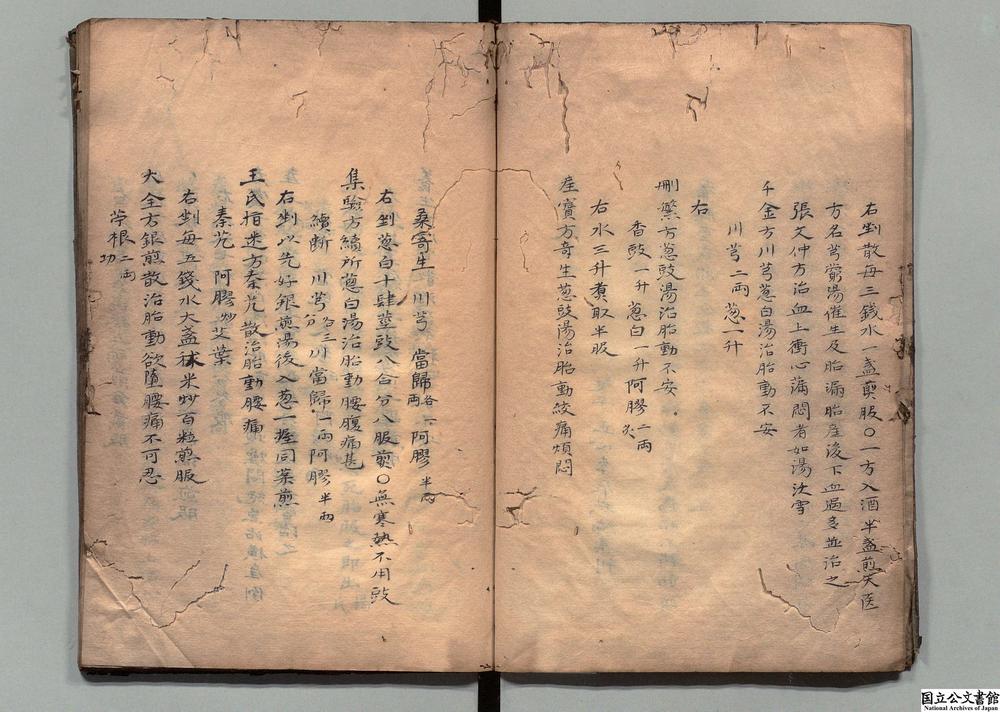 右剉散每三錢水一盞煎服〇一方入酒半盞煎天医
方名芎藭湯催生及胎漏胎産後下血過多並治之
張文仲方治血上衝心滿悶者如湯沃雪
千金方川芎葱白湯治胎動不安
川芎二兩葱一升
右
刪繁方葱豉湯治胎動不安
香豉一升葱白一升阿膠二兩炙
右水三升煮取半服
産寶方寄生葱豉湯治胎動絞痛煩悶
桑寄生 川芎 當歸各一兩 阿膠半兩
右剉葱白十肆莖豉八合分八服煎〇無寒熱不用豉
集驗方續断葱白湯治胎動腰腹痛甚
續斷 川芎各三分 川當歸一兩 阿膠半兩
右剉以先好銀煎湯後入葱一握同藥煎
王氏指迷方秦艽散治胎動腰痛
秦艽 阿膠炒 艾葉
右剉每五錢水大盞秫米炒百粒煎服
大全方銀煎散治胎動欲墮腰痛不可忍
苧根二兩切
国立公文書館
National Archives of Japan